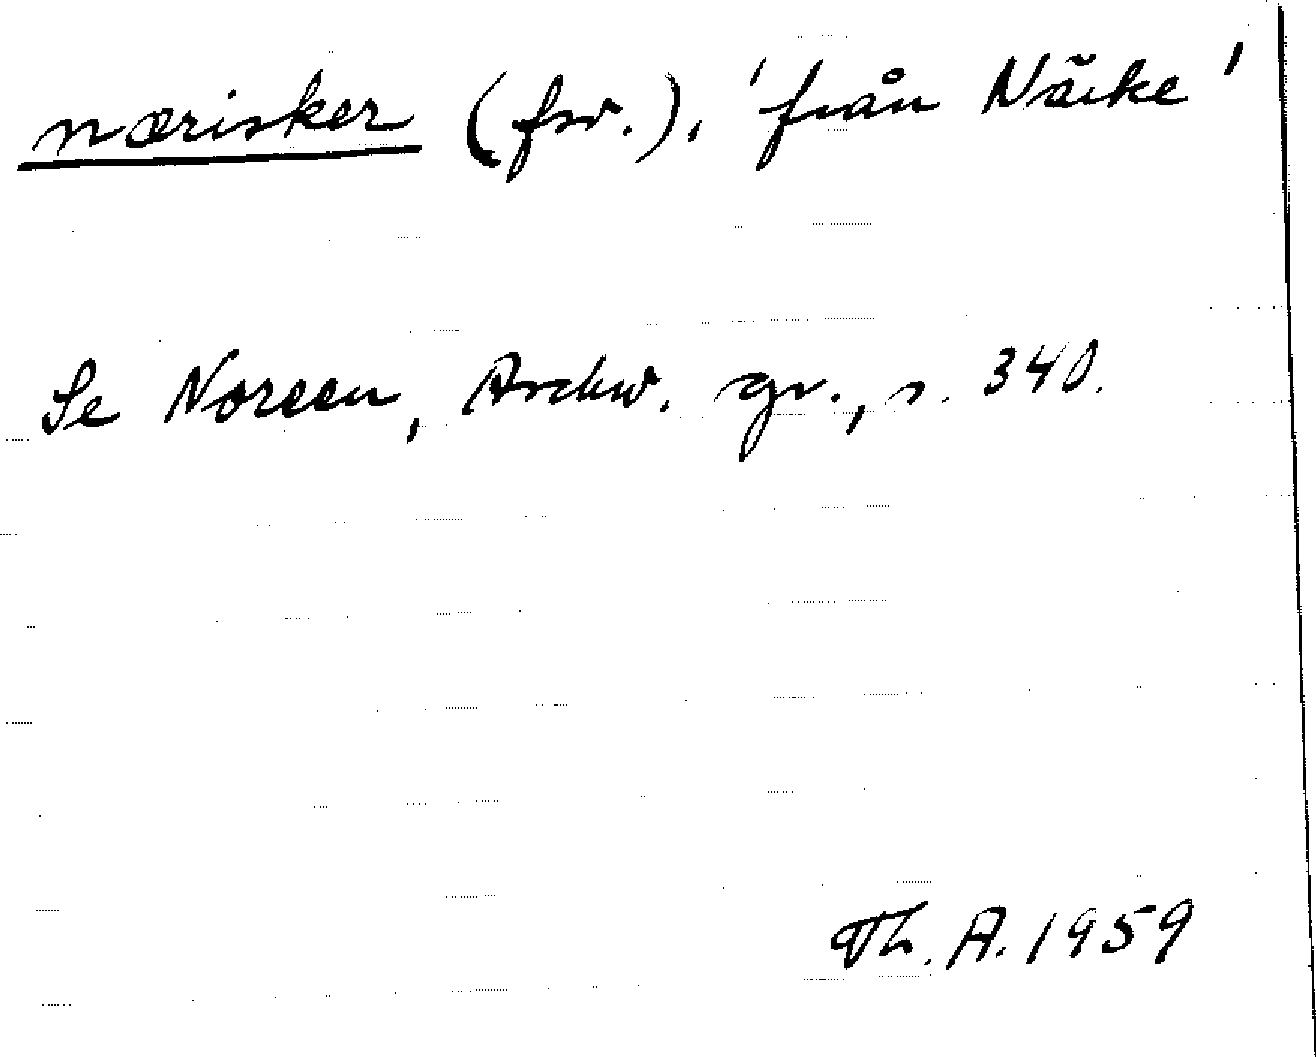 nærisker (fsv.), 'från Närke'
Se Noreen, Aschw. gr., s. 340.
Th. A. 1959